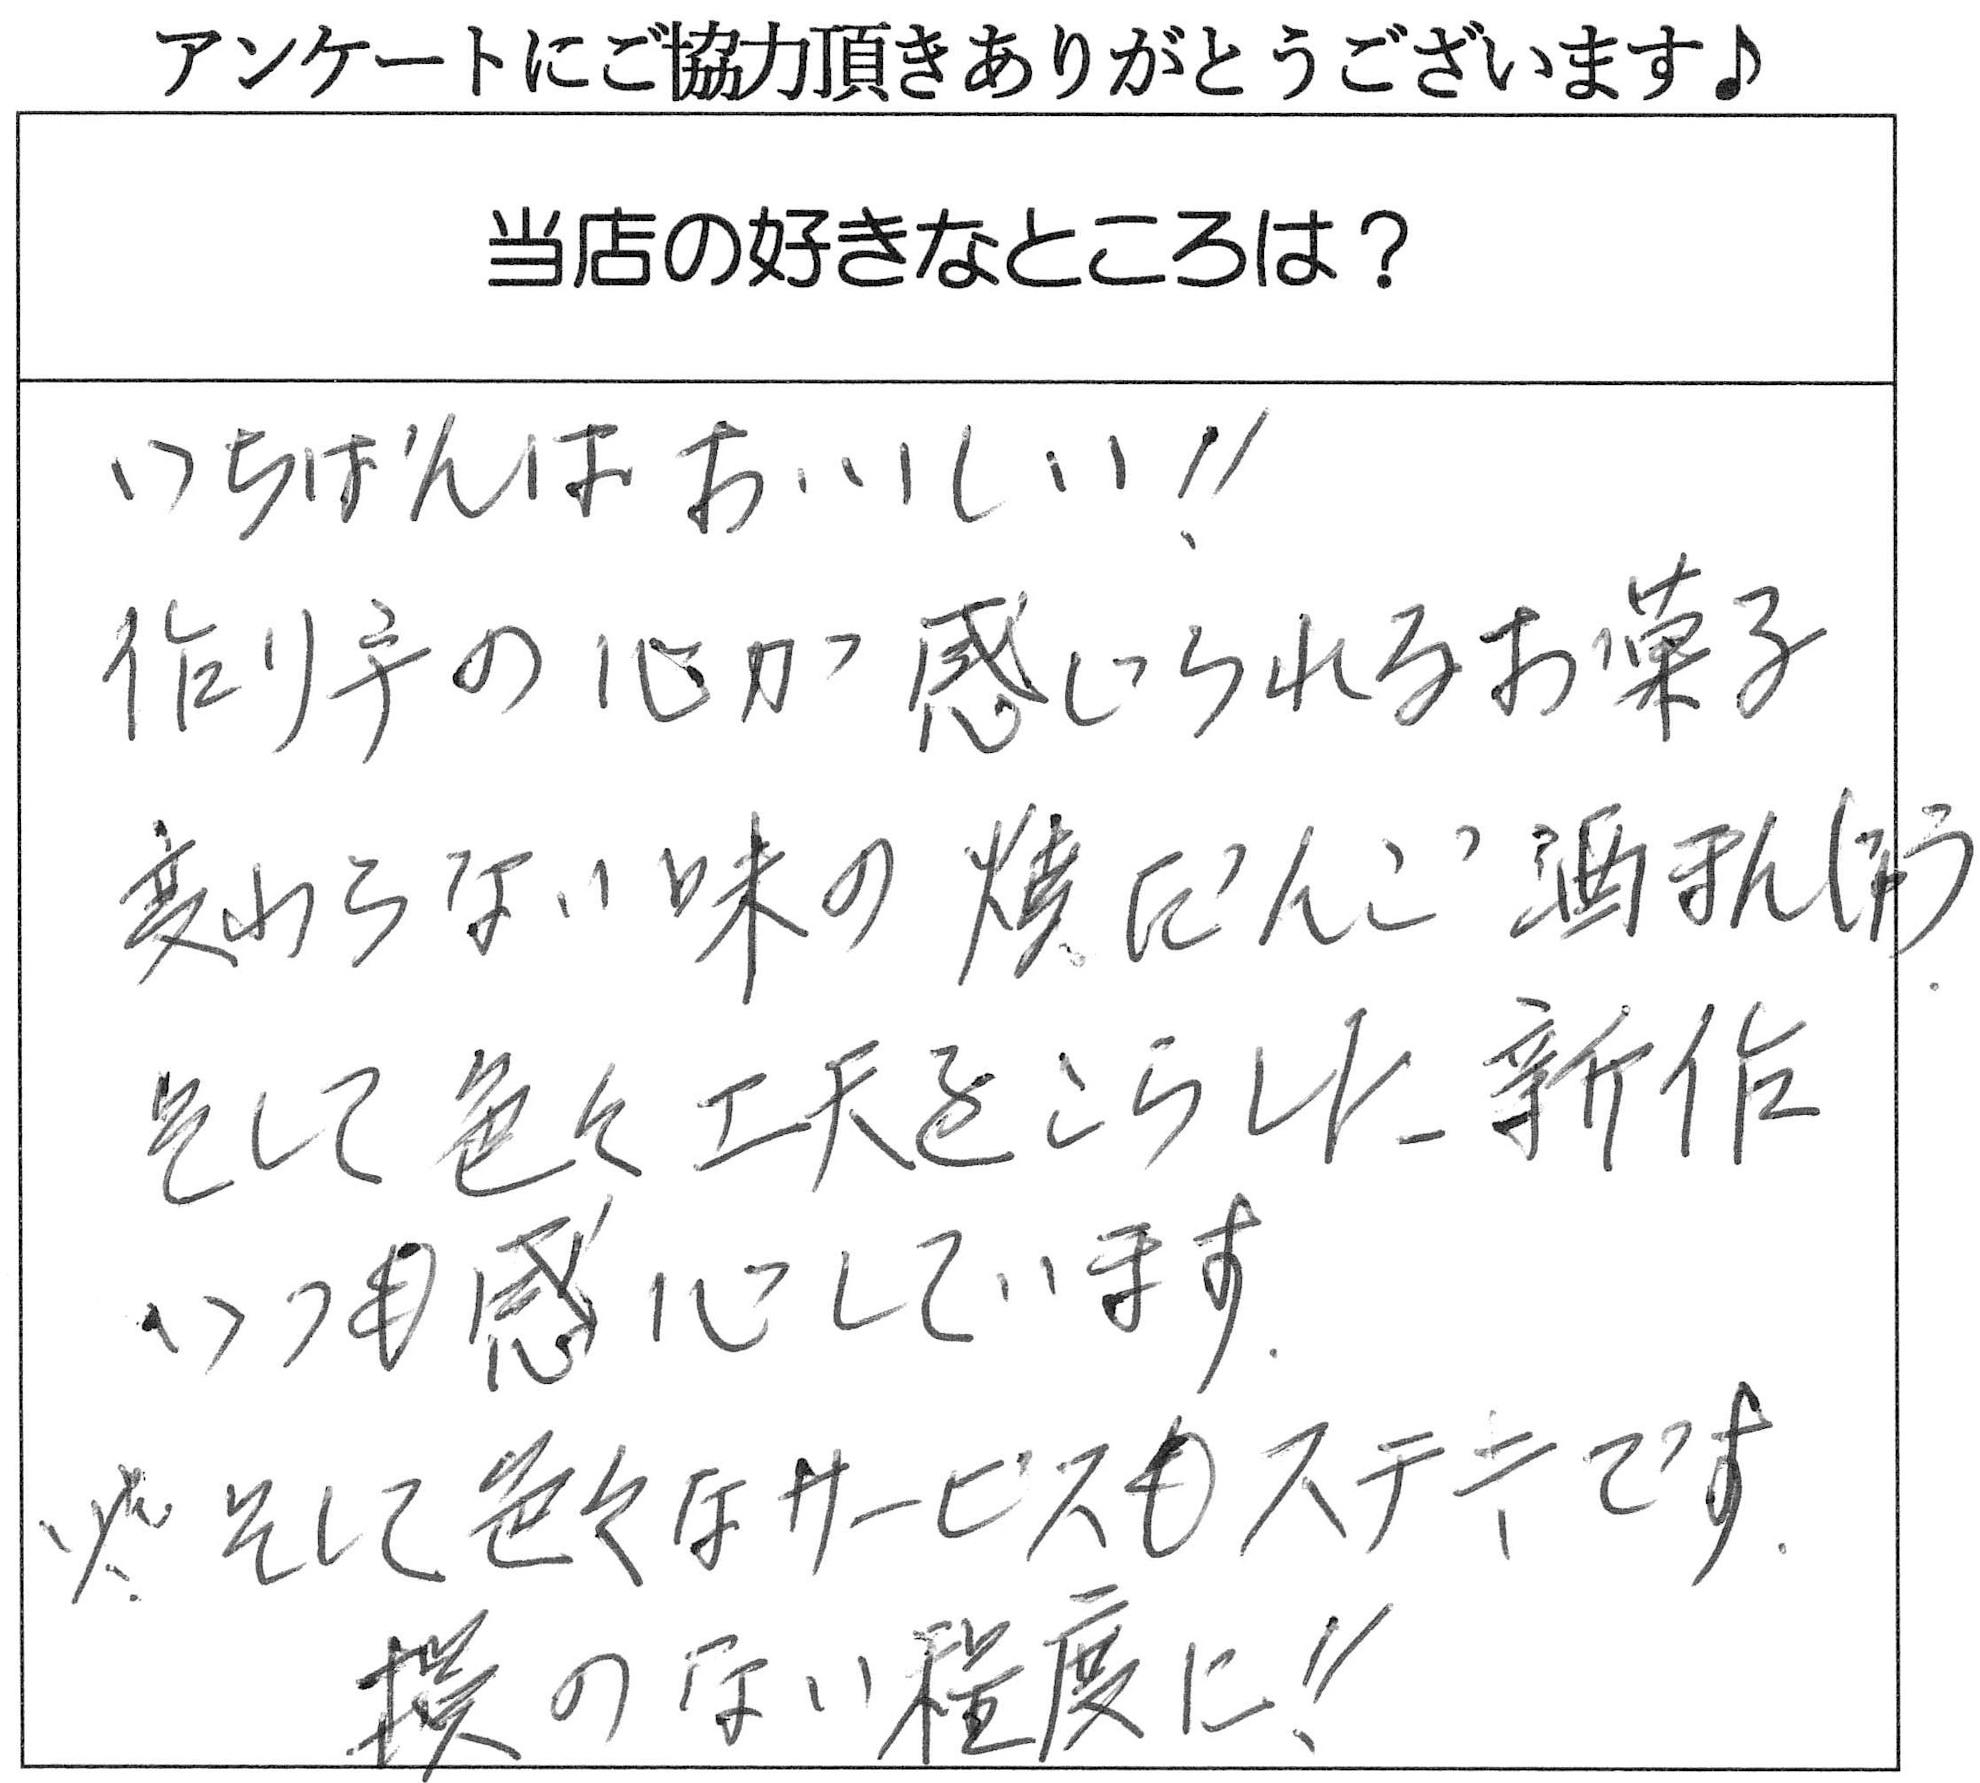 アンケートにご協力頂きありがとうございます♪
当店の好きなところは？
いちばんはおいしい!!
作り手の心が感じられるお菓子
変わらない味の焼だんご酒まんじゅう.
そして色々工夫をこらした新作
いつも感心しています.
※そして色々なサービスもステキです.
損のない程度に!!